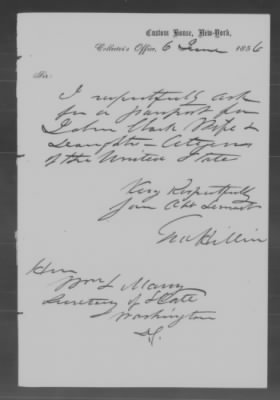 Custom House, New-York,
Collector's Office, 6 June 1856
Sir:
I respectfully ask
for a passport for
John Clark Wife &
Daughter – Citizens
of the United State
Very Respectfully
Your Obt Servant
Hon
Wm L Marcy
Secretary of State
Washington